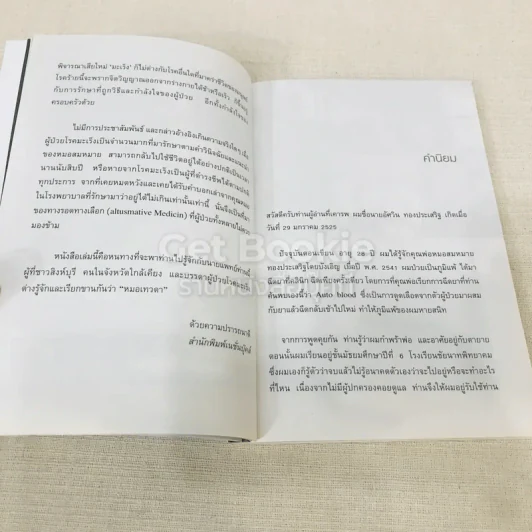 พิจารณาเสียใหม่ 'มะเร็ง' ก็ไม่ต่างกับโรคอื่นใดที่มาคร่าชีวิตของมนุษย์
โรคร้ายนี้จะพรากจิตวิญญาณออกจากร่างกายได้ช้าหรือเร็ว ก็ขึ้นอยู่
กับการรักษาที่ถูกวิธีและกำลังใจของผู้ป่วย อีกทั้งกำลังใจของ
ครอบครัวด้วย
ไม่มีการประชาสัมพันธ์ และกล่าวอ้างอิงเกินความจริงใดๆ เมื่อ
ผู้ป่วยโรคมะเร็งเป็นจำนวนมากที่มารักษาตามคำวินิจฉัยและแนะนำ
ของหมอสมหมาย สามารถกลับไปใช้ชีวิตอยู่ได้อย่างปกติเป็นเวลา
นานนับสิบปี หรือหายจากโรคมะเร็งเป็นผู้ที่ดำรงชีพได้ตามปกติ
ทุกประการ จากที่เคยหมดหวังและเคยได้รับคำบอกเล่าจากคุณหมอ
ในโรงพยาบาลที่รักษามาว่าอยู่ได้ไม่เกินเท่านั้นเท่านี้ นั่นจึงเป็นที่มา
ของทางรอดทางเลือก (altusmative Medicin) ที่ผู้ป่วยทั้งหลายไม่ควร
มองข้าม
หนังสือเล่มนี้คือหนทางที่จะพาท่านไปรู้จักกับนายแพทย์ท่านนี้
ผู้ที่ชาวสิงห์บุรี คนในจังหวัดใกล้เคียง และบรรดาผู้ป่วยโรคมะเร็ง
ต่างรู้จักและเรียกขานกันว่า "หมอเทวดา"
ด้วยความปรารถนาดี
สำนักพิมพ์เนชั่นบุ๊คส์
คำนิยม
สวัสดีครับท่านผู้อ่านที่เคารพ ผมชื่อนายอัศวิน ทองประเสริฐ เกิดเมื่อ
วันที่ 29 มกราคม 2525
ปัจจุบันตอนเรียน อายุ 28 ปี ผมได้รู้จักคุณพ่อหมอสมหมาย
ทองประเสริฐโดยบังเอิญ เมื่อปี พ.ศ. 2541 ผมป่วยเป็นภูมิแพ้ ได้มา
ฉีดยาที่คลินิก ฉีดเพียงครั้งเดียว โดยการที่คุณพ่อเรียกการฉีดยาที่ท่าน
ค้นพบเองนี้ว่า Auto blood ซึ่งเป็นการดูดเลือดจากตัวผู้ป่วยมาผสม
กับยาแล้วฉีดกลับเข้าไปใหม่ ทำให้ภูมิแพ้ของผมหายสนิท
จากการพูดคุยกัน ท่านรู้ว่าผมกำพร้าพ่อ และอาศัยอยู่กับตายาย
ตอนนั้นผมเรียนอยู่ชั้นมัธยมศึกษาปีที่ 6 โรงเรียนชัยนาทพิทยาคม
ซึ่งผมเองก็รู้ตัวว่าจบแล้วไม่รู้อนาคตตัวเองว่าจะไปอยู่หรือจะทำอะไร
ที่ไหน เนื่องจากไม่มีผู้ปกครองคอยดูแล ท่านจึงให้ผมอยู่รับใช้ท่าน
Get Bookie